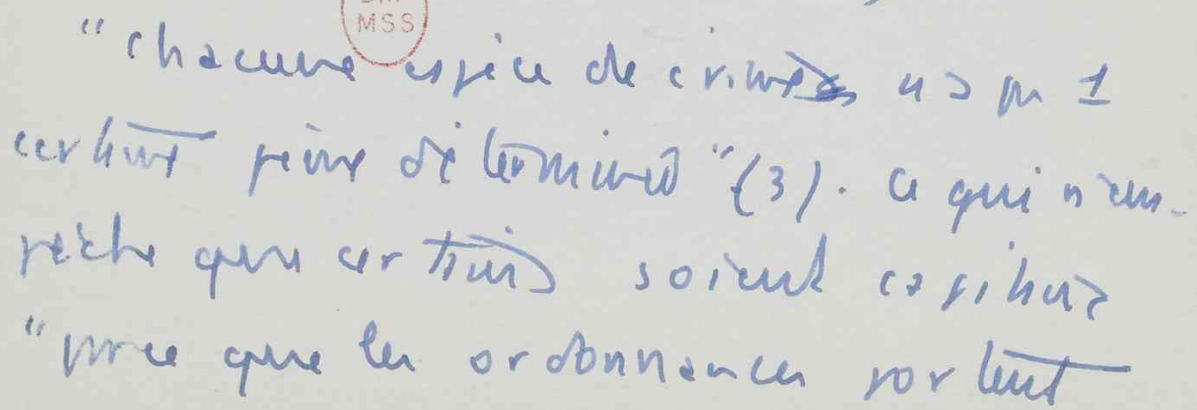 MSS
"chacune espèce de crimes n'a pas 1
certaine peine déterminée" (3). Ce qui n'em-
pêche que certains soient capitaux
"parce que les ordonnances portent